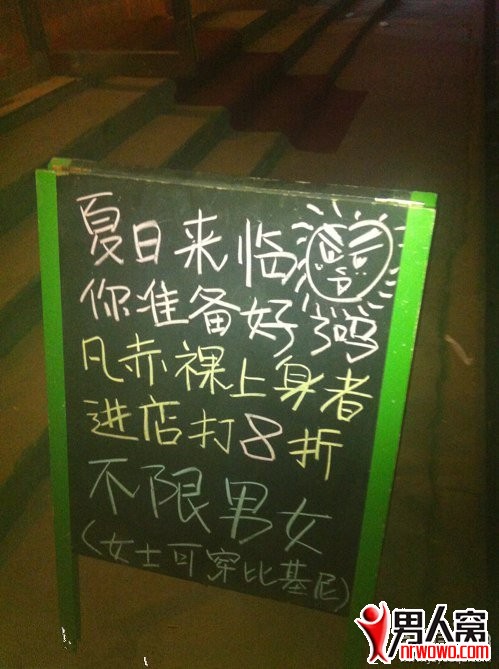 夏日来临
你准备好了吗
凡赤裸上身者
进店打8折
不限男女
(女士可穿比基尼)
男人窝
nrwowo.com